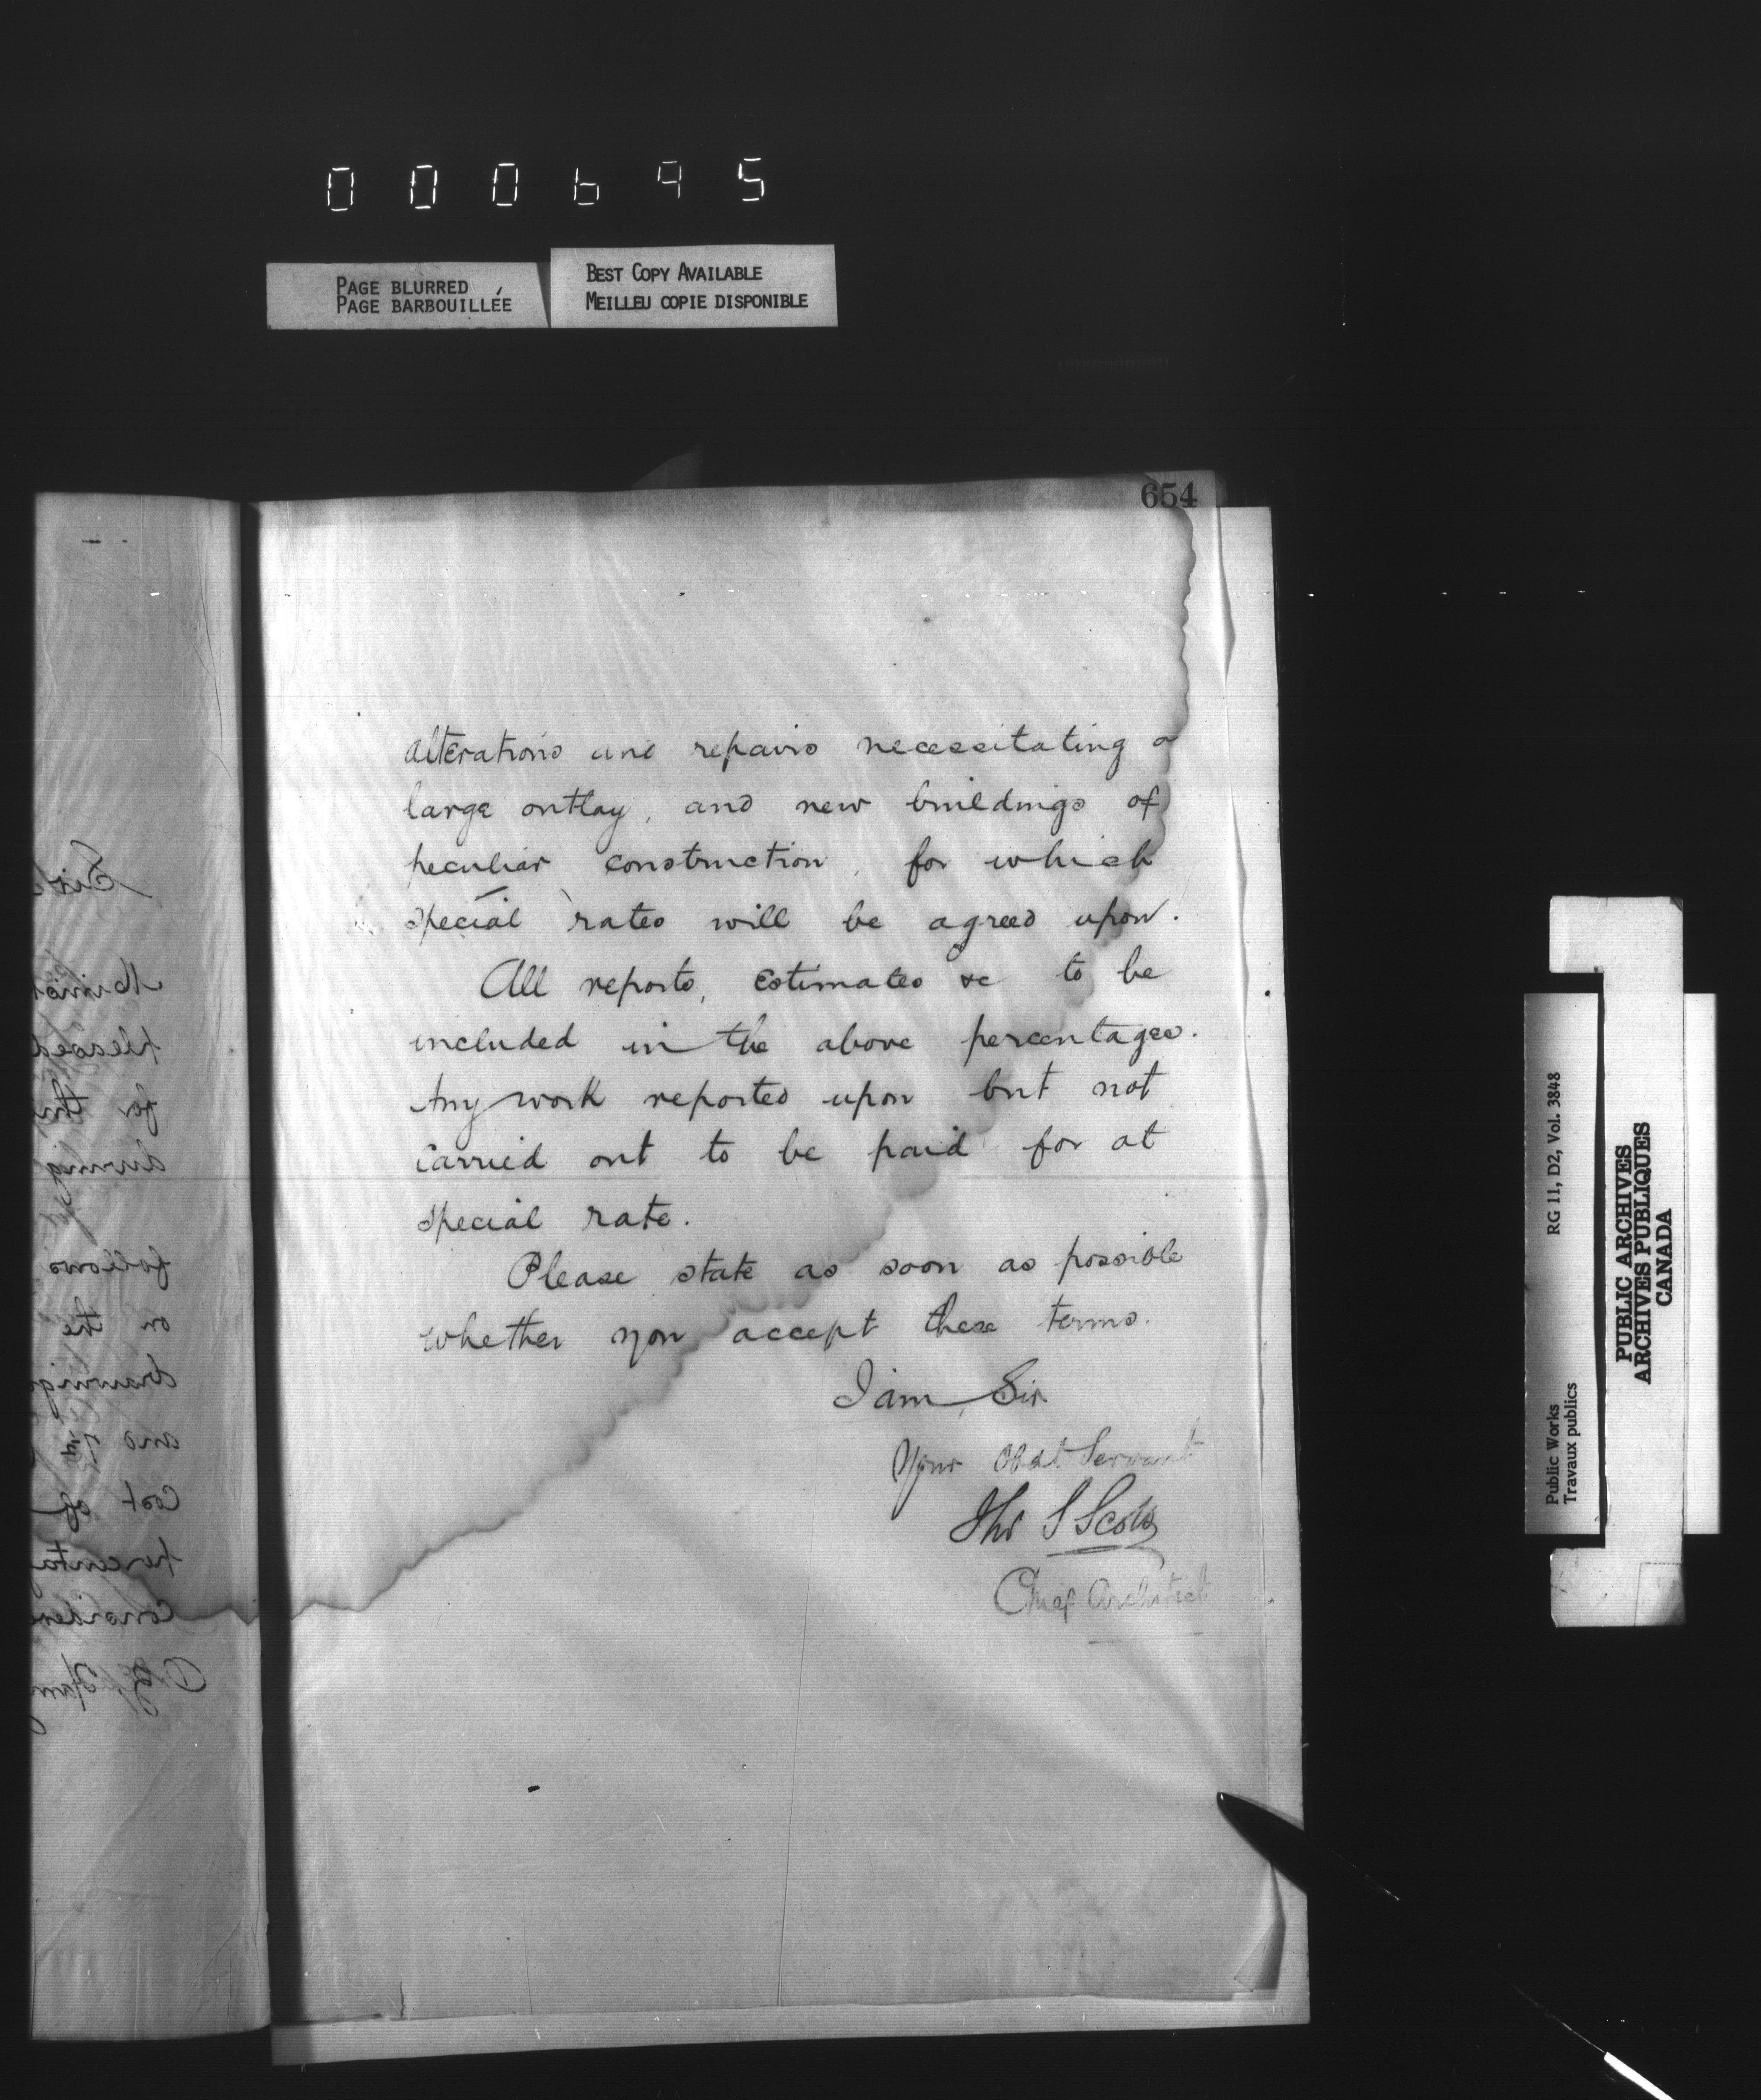 000695
PAGE BLURRED
PAGE BARBOUILLÉE
BEST COPY AVAILABLE
MEILLEU COPIE DISPONIBLE
654
alterations and repairs necessitating a
large outlay, and new buildings of
peculiar construction, for which
special rates will be agreed upon.
All reports, estimates &c to be
included in the above percentages.
Any work reported upon but not
carried out to be paid for at
special rate.
Please state as soon as possible
whether you accept these terms.
I am, Sir
Your Obdt Servant
Thos S Scott
Chief Architect
Sir
pleased
for the
during
follows
on the
drawings
and
cost of
Public Works
Travaux publics
RG 11, D2, Vol. 3848
PUBLIC ARCHIVES
ARCHIVES PUBLIQUES
CANADA